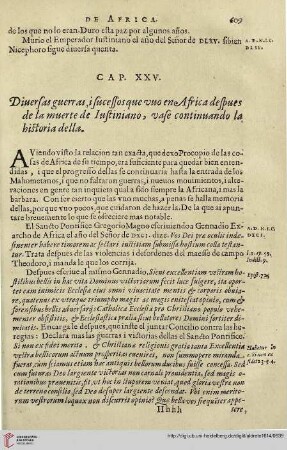 DE AFRICA. 609
de los que no lo eran. Duro esta paz por algunos años.
Murio el Emperador Iustiniano el año del Señor de DLXV. si bien
Nicephoro sigue diversa quenta.
CAP. XXV.
Diuersas guerras, i sucessos que vuo en Africa despues
de la muerte de Iustiniano, vase continuando la
historia della.
AViendo visto la relacion tan exacta, que dexo Procopio de las co-
sas de Africa de su tiempo, era suficiente para quedar bien enten-
didas, i que el progresso dellas se continuaria hasta la entrada de los
Mahometanos, i que no faltaron guerras, i nueuos mouimientos, i alte-
raciones en gente tan inquieta qual a sido siempre la Africana, i mas la
barbara. Con ser cierto que las vuo muchas, a penas ai la memoria
dellas, porque vuo pocos, que cuidaran de hazerla. De la que ai apun-
tare breuemente lo que se ofreciere mas notable.
El Sancto Pontifice Gregorio Magno escriuiendo a Gennadio Exar-
ancho de Africa el año del Señor de DXCI. dize. Vos Dei præ oculis inde-
sinenter habere timorem ac sectari iustitiam submissa hostium colla testan-
tur. Trata despues de las violencias i desordenes del maesse de campo
Theodoro, i manda le que los corrija.
Despues escriue al mismo Gennadio, Sicut excellentiam vestram ho-
stilibus bellis in hac vita Dominus victoriarum fecit luce fulgere, ita opor-
tet eam inimicis Ecclesiæ eius omni viuacitate mentis & corporis obuia-
re, quatenus ex vtroque triumpho magis ac magis enitescat opinio, cum &
forensibus bellis aduersarijs Catholicæ Ecclesiæ pro Christiano populo vehe-
menter obsistitis, & Ecclesiastica prælia sicut bellatores Domini fortiter di-
micatis. Encargale despues, que inste el juntar Concilio contra los here-
ges: Declara mas las guerras i victorias dellas el Sancto Pontifice.
Si non ex fidei merito, & Christianæ religionis gratia tanta Excellentiæ
vestræ bellicorum actuum prosperitas eueniret, non summopere miranda
fuerat, cum sciamus hæc etiam antiquis bellorum ducibus fuisse concessa. Sed
cum futuras Deo largiente victorias non carnali prouidentia, sed magis ora-
tionibus præuenitis, fit hoc in stuporem venire, quod gloria vestra non
de terreno consilio, sed Deo desuper largiente descendit. Vbi enim meri-
torum vestrorum loquax non discurrit opinio? Quæ bella vos frequenter appe-
Hhhh tere,